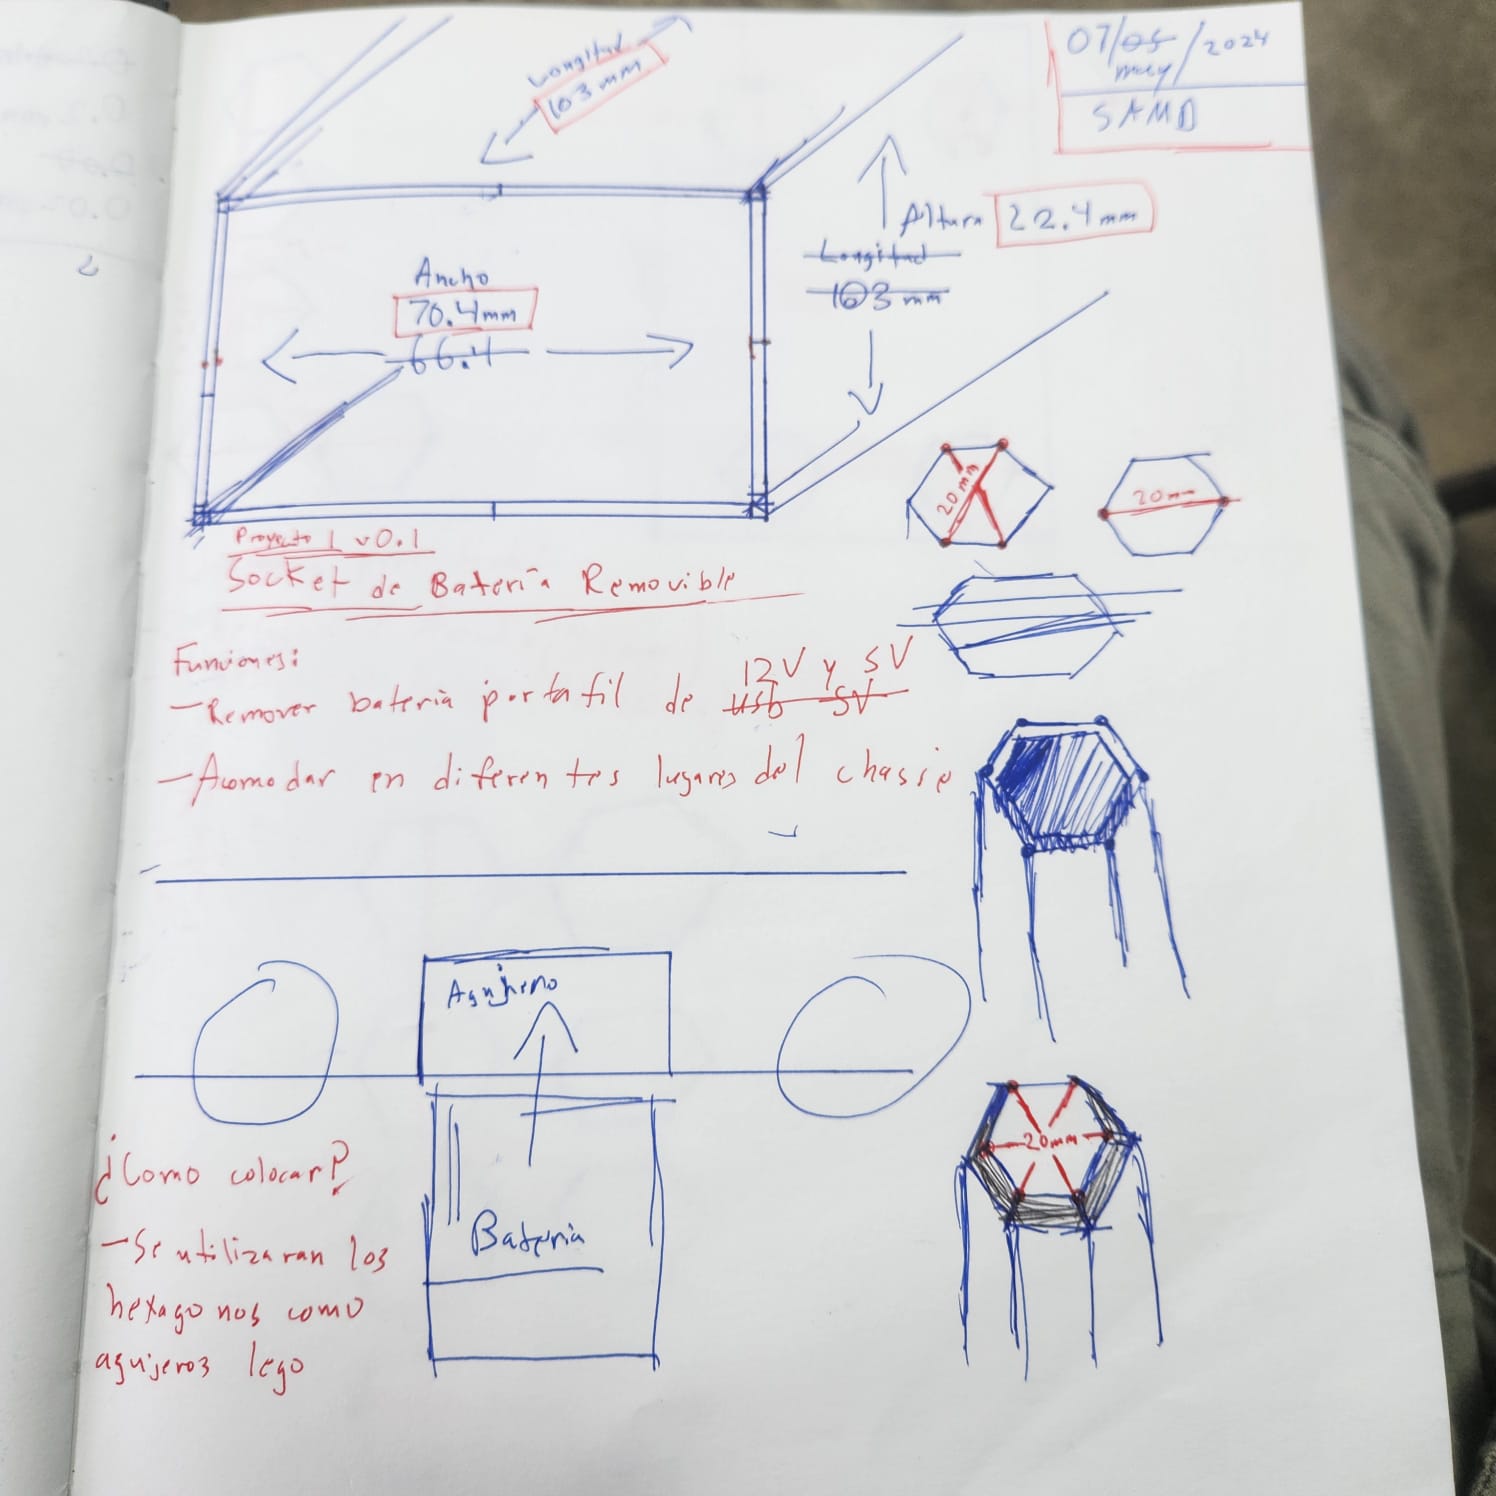 07/05/2024
may
SAMD
Longitud
103 mm
Altura 22.4mm
Longitud
103 mm
Ancho
70.4mm
66.4
20 mm
20mm
Proyecto 1 v0.1
Socket de Bateria Removible
Funciones:
12V y 5V
-Remover bateria portafil de usb 5V
-Acomodar en diferentes lugares del chassis
Agujero
Bateria
20mm
¿Como colocar?
-Se utilizaran los
hexagonos como
agujeros lego